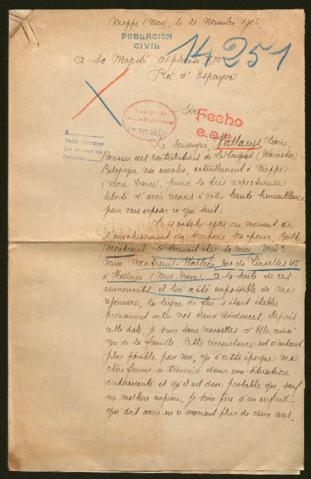 Nieppe (Nord, le 21 Novembre 1916
POBLACIÓN
CIVIL
14251
A Sa Majesté Alphonse XIII
Roi d'Espagne
Sire,
Fecho
Le soussigné, Pattacys, Léon,
Receveur des Contributions de
Belgique non envahie, actuellement à Nieppe
(Nord, France), prend la très respectueuse
liberté d'avoir recours à votre haute bienveillance
pour vous exposer ce qui suit:
Le 4 octobre 1914, au moment de
l'envahissement du territoire, mon épouse, Edith,
se trouvait chez sa mère, Mad.
rue de Linselles 45
à Halluin (Nord-France). A la suite de ces
évènements, il lui a été impossible de me
rejoindre, la ligne de feu s'étant établie
précisément entre nos deux résidences. Depuis
cette date je suis sans nouvelles d'Elle, ainsi
que de la famille. Cette circonstance est d'autant
plus pénible pour moi, qu'à cette époque ma
chère femme se trouvait dans une situation
intéressante et qu'il est donc probable que, sauf
un malheur imprévu, je suis père d'un enfant
qui doit avoir en ce moment plus de deux ans.